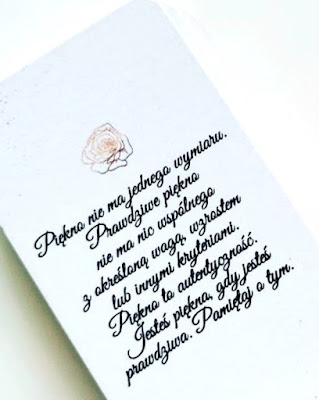 Piękno nie ma jednego wymiaru.
Prawdziwe piękno
nie ma nic wspólnego
z określoną wagą, wzrostem
lub innymi kryteriami.
Piękno to autentyczność.
Jesteś piękna, gdy jesteś
prawdziwa. Pamiętaj o tym.